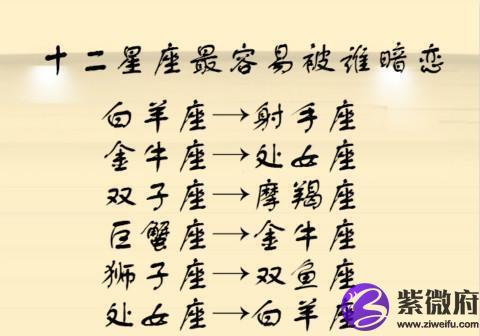 十二星座最容易被谁暗恋
白羊座→射手座
金牛座→处女座
双子座→摩羯座
巨蟹座→金牛座
狮子座→双鱼座
处女座→白羊座
紫微府
www.ziweifu.com